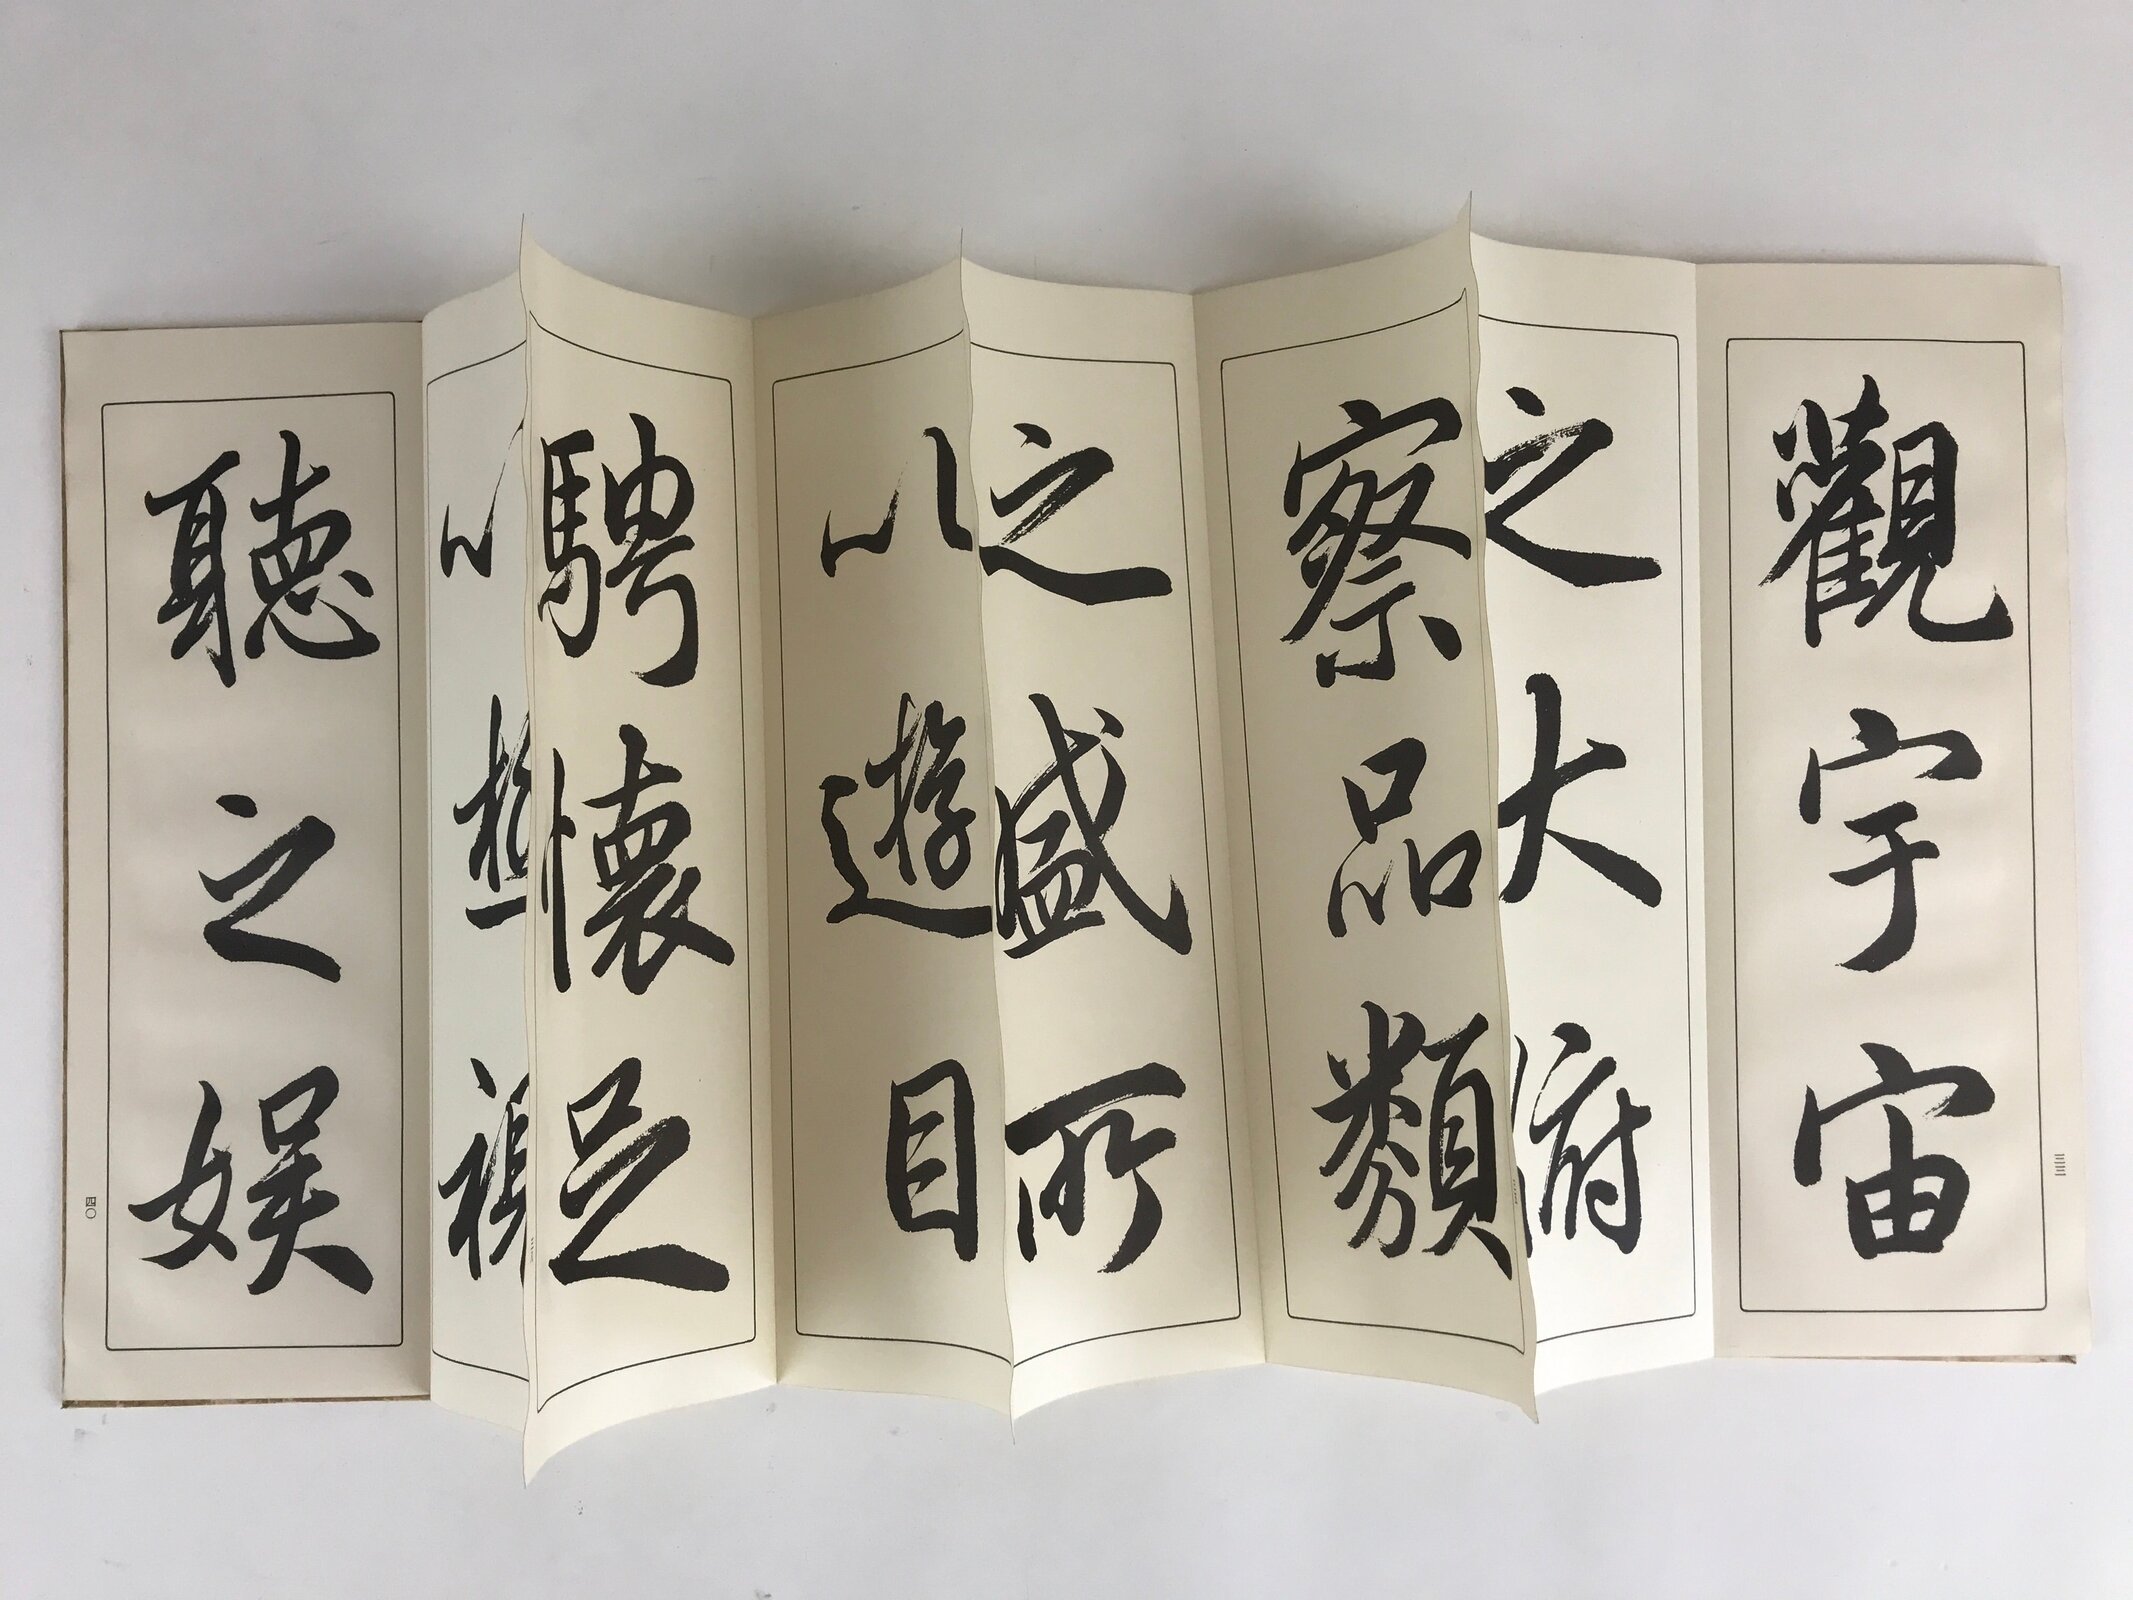 觀宇宙
之大俯
察品類
之盛所
以遊目
騁懷足
以極視
聽之娛
四〇